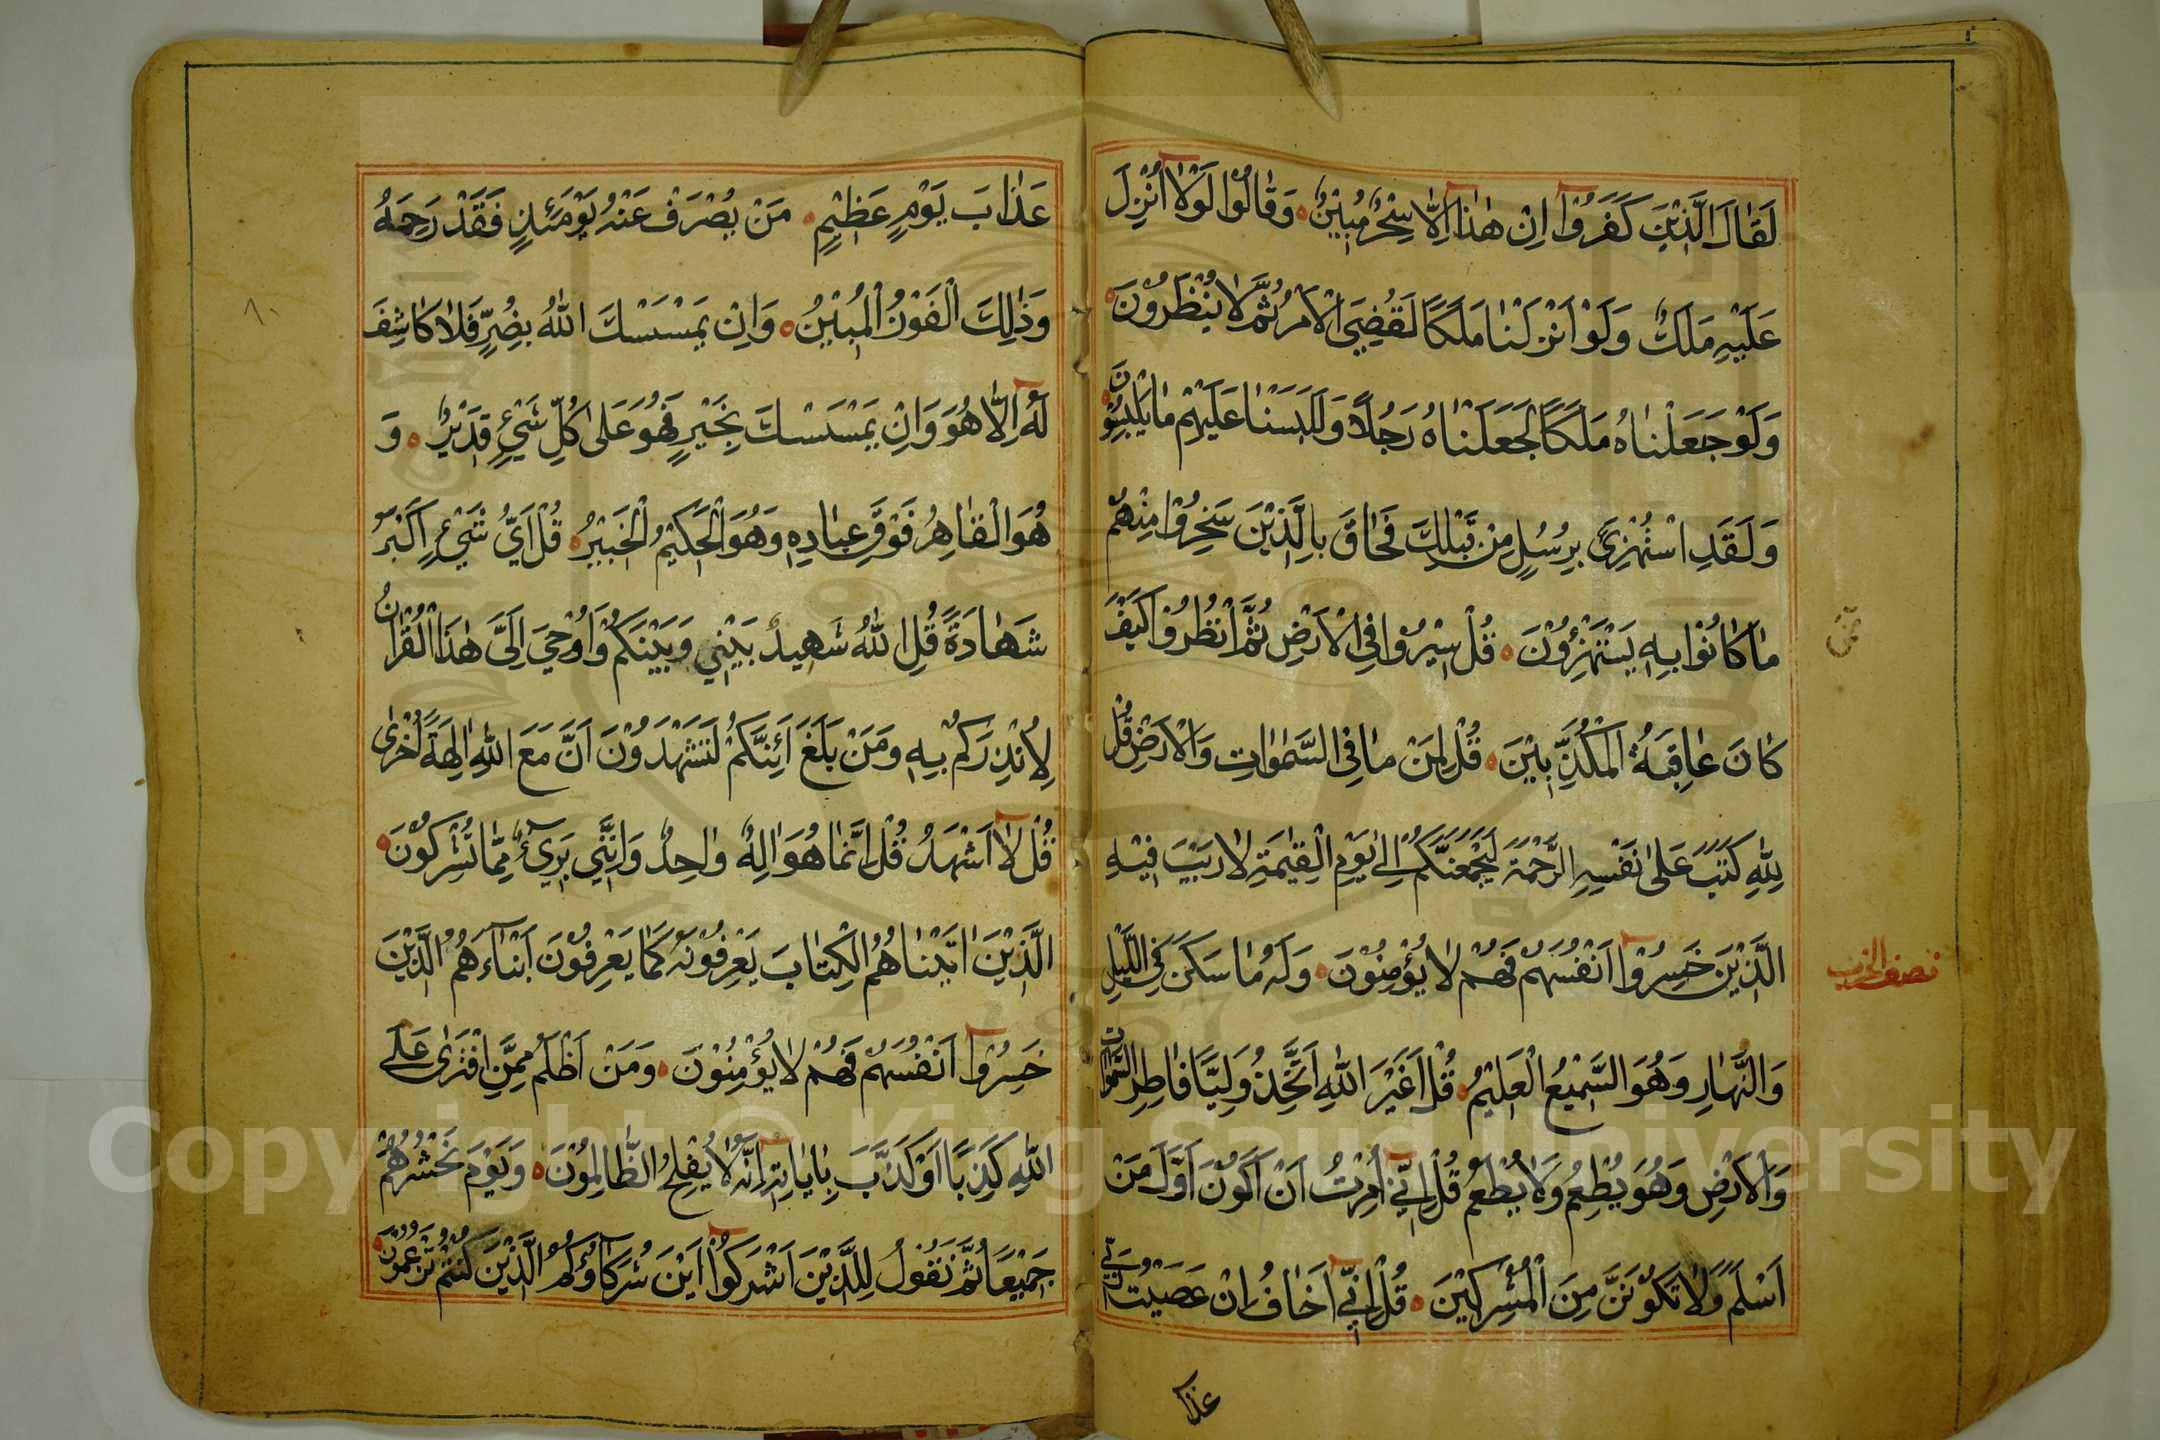 لَقَالَ الَّذِيْنَ كَفَرُوْٓا اِنْ هٰذَٓا اِلَّا سِحْرٌ مُبِيْنٌ ۝ وَقَالُوْا لَوْلَٓا اُنْزِلَ
عَلَيْهِ مَلَكٌ وَلَوْ اَنْزَلْنَا مَلَكًا لَقُضِيَ الْاَمْرُ ثُمَّ لَا يُنْظَرُوْنَ ۝
وَلَوْ جَعَلْنَاهُ مَلَكًا لَجَعَلْنَاهُ رَجُلًا وَلَلَبَسْنَا عَلَيْهِمْ مَا يَلْبِسُوْنَ ۝
وَلَقَدِ اسْتُهْزِئَ بِرُسُلٍ مِنْ قَبْلِكَ فَحَاقَ بِالَّذِيْنَ سَخِرُوْا مِنْهُمْ
مَا كَانُوْا بِهِ يَسْتَهْزِؤُنَ ۝ قُلْ سِيْرُوْا فِي الْاَرْضِ ثُمَّ انْظُرُوْا كَيْفَ
كَانَ عَاقِبَةُ الْمُكَذِّبِيْنَ ۝ قُلْ لِمَنْ مَا فِي السَّمٰوَاتِ وَالْاَرْضِ قُلْ
لِلّٰهِ كَتَبَ عَلٰى نَفْسِهِ الرَّحْمَةَ لَيَجْمَعَنَّكُمْ اِلٰى يَوْمِ الْقِيٰمَةِ لَا رَيْبَ فِيْهِ
الَّذِيْنَ خَسِرُوْٓا اَنْفُسَهُمْ فَهُمْ لَا يُؤْمِنُوْنَ ۝ وَلَهُ مَا سَكَنَ فِي اللَّيْلِ
وَالنَّهَارِ وَهُوَ السَّمِيْعُ الْعَلِيْمُ ۝ قُلْ اَغَيْرَ اللّٰهِ اَتَّخِذُ وَلِيًّا فَاطِرِ السَّمٰوَاتِ
وَالْاَرْضِ وَهُوَ يُطْعِمُ وَلَا يُطْعَمُ قُلْ اِنِّيْٓ اُمِرْتُ اَنْ اَكُوْنَ اَوَّلَ مَنْ
اَسْلَمَ وَلَا تَكُوْنَنَّ مِنَ الْمُشْرِكِيْنَ ۝ قُلْ اِنِّيْٓ اَخَافُ اِنْ عَصَيْتُ رَبِّيْ
عذاب
ثمن
نصف الحزب
عَذَابَ يَوْمٍ عَظِيْمٍ ۝ مَنْ يُصْرَفْ عَنْهُ يَوْمَئِذٍ فَقَدْ رَحِمَهُ
وَذٰلِكَ الْفَوْزُ الْمُبِيْنُ ۝ وَاِنْ يَمْسَسْكَ اللّٰهُ بِضُرٍّ فَلَا كَاشِفَ
لَهُٓ اِلَّا هُوَ وَاِنْ يَمْسَسْكَ بِخَيْرٍ فَهُوَ عَلٰى كُلِّ شَيْءٍ قَدِيْرٌ ۝ وَ
هُوَ الْقَاهِرُ فَوْقَ عِبَادِهِ وَهُوَ الْحَكِيْمُ الْخَبِيْرُ ۝ قُلْ اَيُّ شَيْءٍ اَكْبَرُ
شَهَادَةً قُلِ اللّٰهُ شَهِيدٌ بَيْنِي وَبَيْنَكُمْ وَاُوْحِيَ اِلَيَّ هٰذَا الْقُرْاٰنُ
لِاُنْذِرَكُمْ بِهِ وَمَنْ بَلَغَ اَئِنَّكُمْ لَتَشْهَدُوْنَ اَنَّ مَعَ اللّٰهِ اٰلِهَةً اُخْرٰى
قُلْ لَٓا اَشْهَدُ قُلْ اِنَّمَا هُوَ اِلٰهٌ وَاحِدٌ وَاِنَّنِي بَرِيٓءٌ مِمَّا تُشْرِكُوْنَ ۝
الَّذِيْنَ اٰتَيْنَاهُمُ الْكِتَابَ يَعْرِفُوْنَهُ كَمَا يَعْرِفُوْنَ اَبْنَآءَهُمُ الَّذِيْنَ
خَسِرُوْٓا اَنْفُسَهُمْ فَهُمْ لَا يُؤْمِنُوْنَ ۝ وَمَنْ اَظْلَمُ مِمَّنِ افْتَرٰى عَلَى
اللّٰهِ كَذِبًا اَوْ كَذَّبَ بِاٰيَاتِهِ اِنَّهُ لَا يُفْلِحُ الظَّالِمُوْنَ ۝ وَيَوْمَ نَحْشُرُهُمْ
جَمِيْعًا ثُمَّ نَقُوْلُ لِلَّذِيْنَ اَشْرَكُوْٓا اَيْنَ شُرَكَآؤُكُمُ الَّذِيْنَ كُنْتُمْ تَزْعُمُوْنَ ۝
٨٠
Copyright © King Saud University
1957